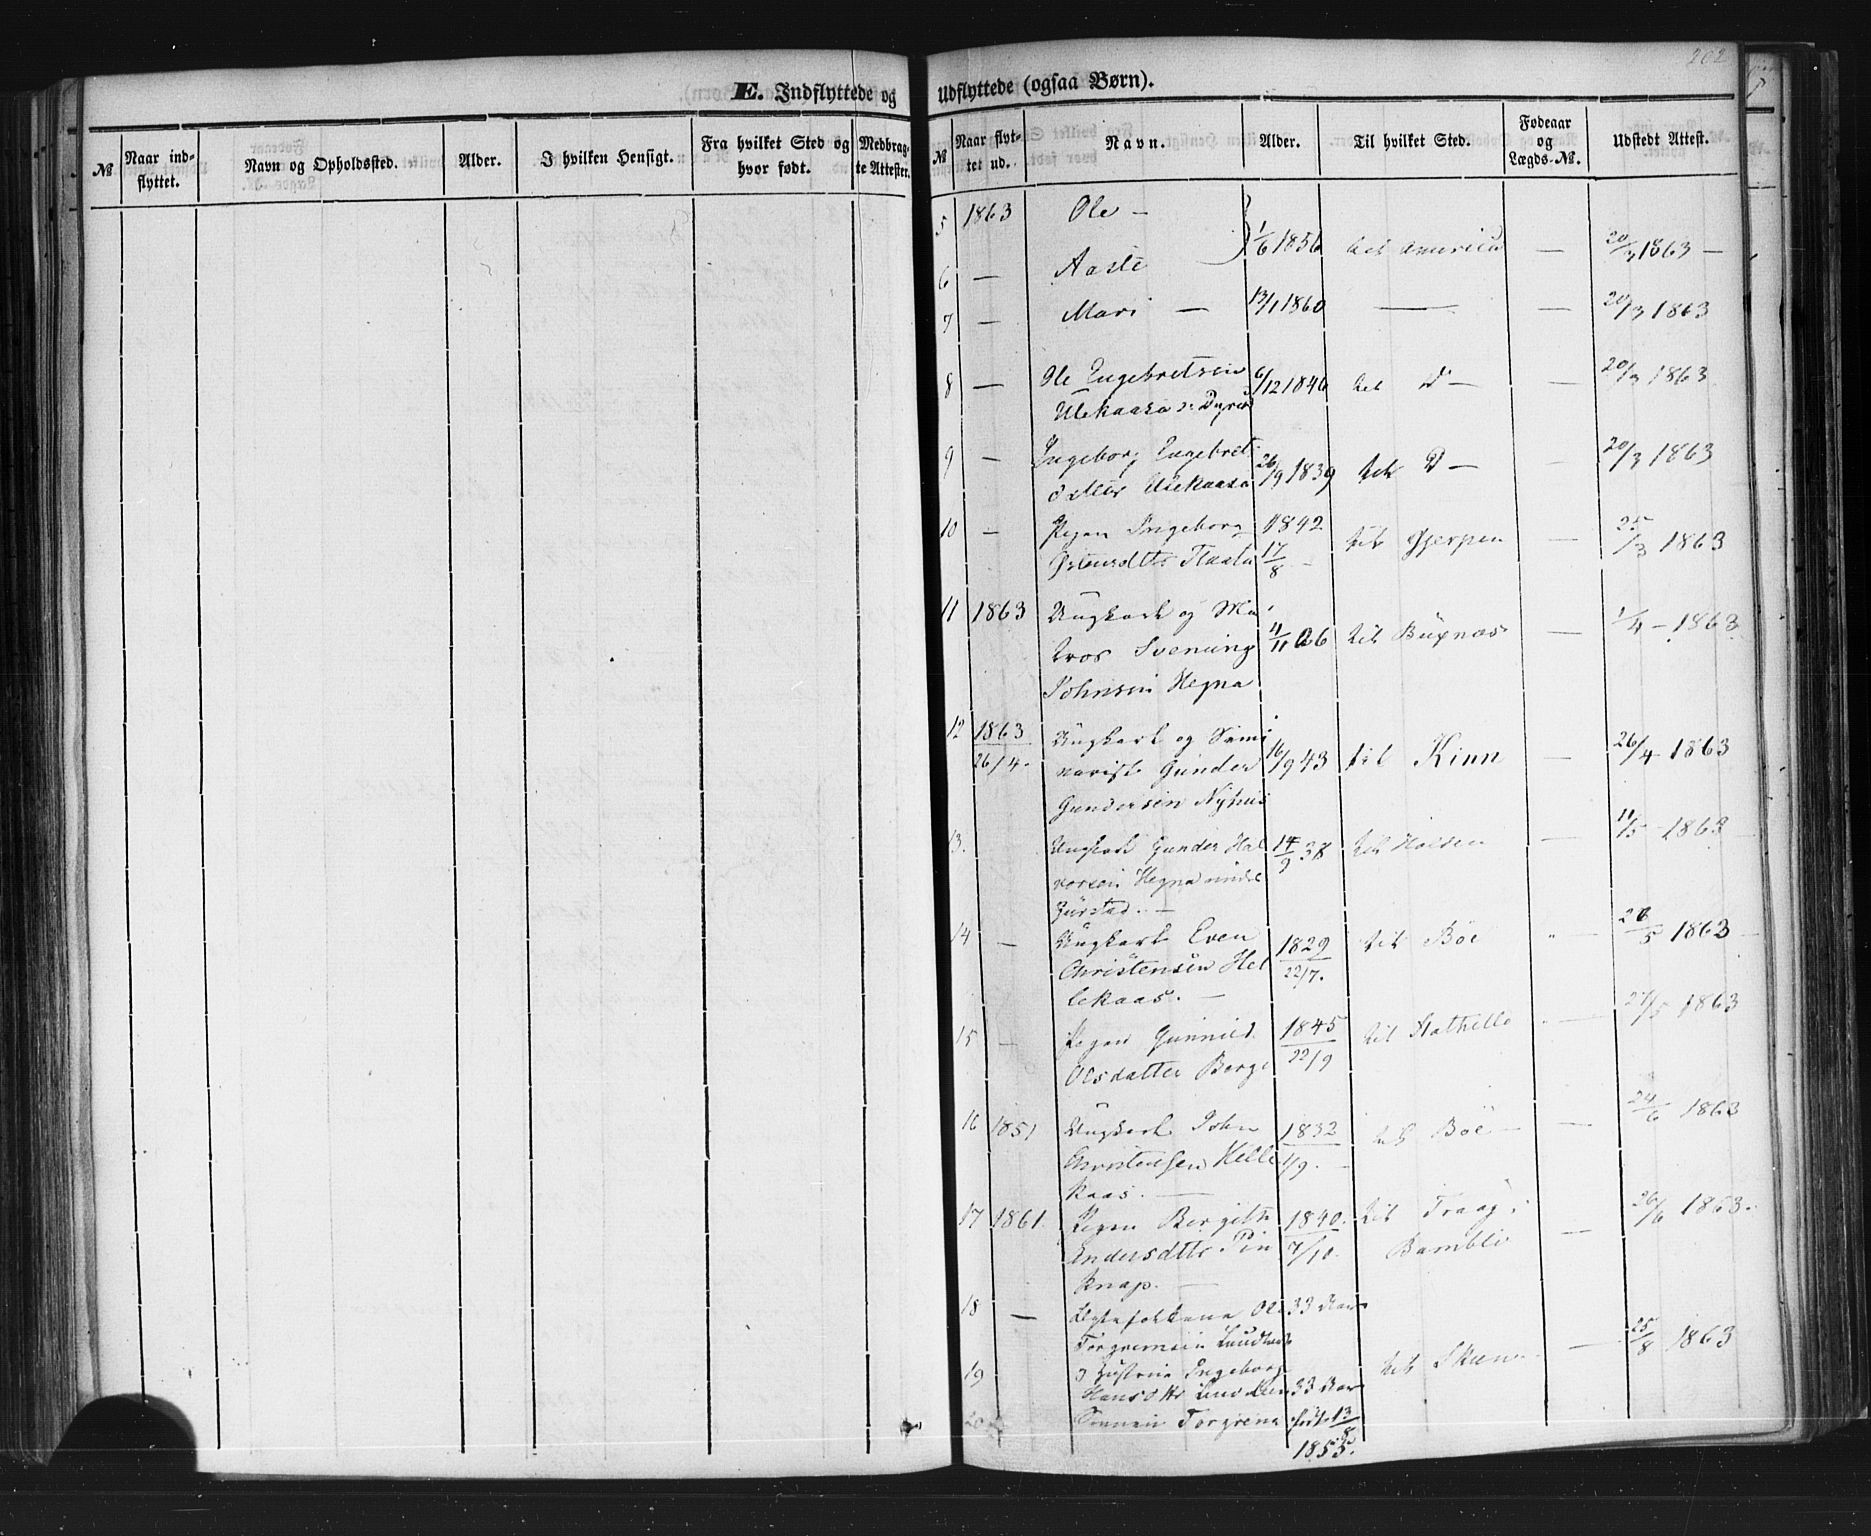 202
E. Indflyttede og Udflyttede (ogsaa Børn).
№ Naar indflyttet. Navn og Opholdssted. Alder. I hvilken Hensigt. Fra hvilket Sted og hvor født. Medbragte Attester.
№ Naar flyttet ud. Navn. Alder. Til hvilket Sted. Fødeaar og Lægds-№. Udstedt Attest.
5 1863 Ole —
1/6 1856 til America — 20/3 1863 —
6 — Aaste
7 — Mari — 13/1 1860 — — 20/3 1863
8 — Ole Engebretsen 6/12 1846 til D — — 20/3 1863
Ulekaasa
9 — Ingeborg Engebret- 26/9 1839 til D — — 20/3 1863
datter Ulekaasa
10 — Pigen Ingeborg 1842 til Gjerpen — 25/3 1863
Flaata 17/8 —
11 1863 Ungkarl og Ma- 4/11 26 til — 1/4 — 1863
tros Svenung
Johnsen Hegna
12 1863 Ungkarl og Semi- 16/9 43 til Kinn — 26/4 1863
26/4. narist Gunder
Gundersen Nyhus
13. Ungkarl Gunder Hal- 14/9 38 til — 11/5 1863
vorsen Hegna under
14 — Ungkarl Even 1829 til Böe " — /5 1863 —
Christensen Hel- 22/7.
lekaas. —
15 — Pigen Gunnild 1845 til Stathelle — 27/5 1863
Olsdatter Berge 22/9
16 1851 Ungkarl John 1832 til Böe — — 24/6 1863
Christensen Helle- 1/9. —
kaas. —
17 1861. Pigen Bergith 1840. til Traag i — 26/6 1863.
Andersdtr. Pin- 7/10. Bamble
knap. —
18 — Ægtefolkene Ole 33 Aar
Torgremsen
til — 25/8 1863
19 Hustrue Ingeborg
33 Aar
20 Sønnen Torgrem født 13/8
1855.